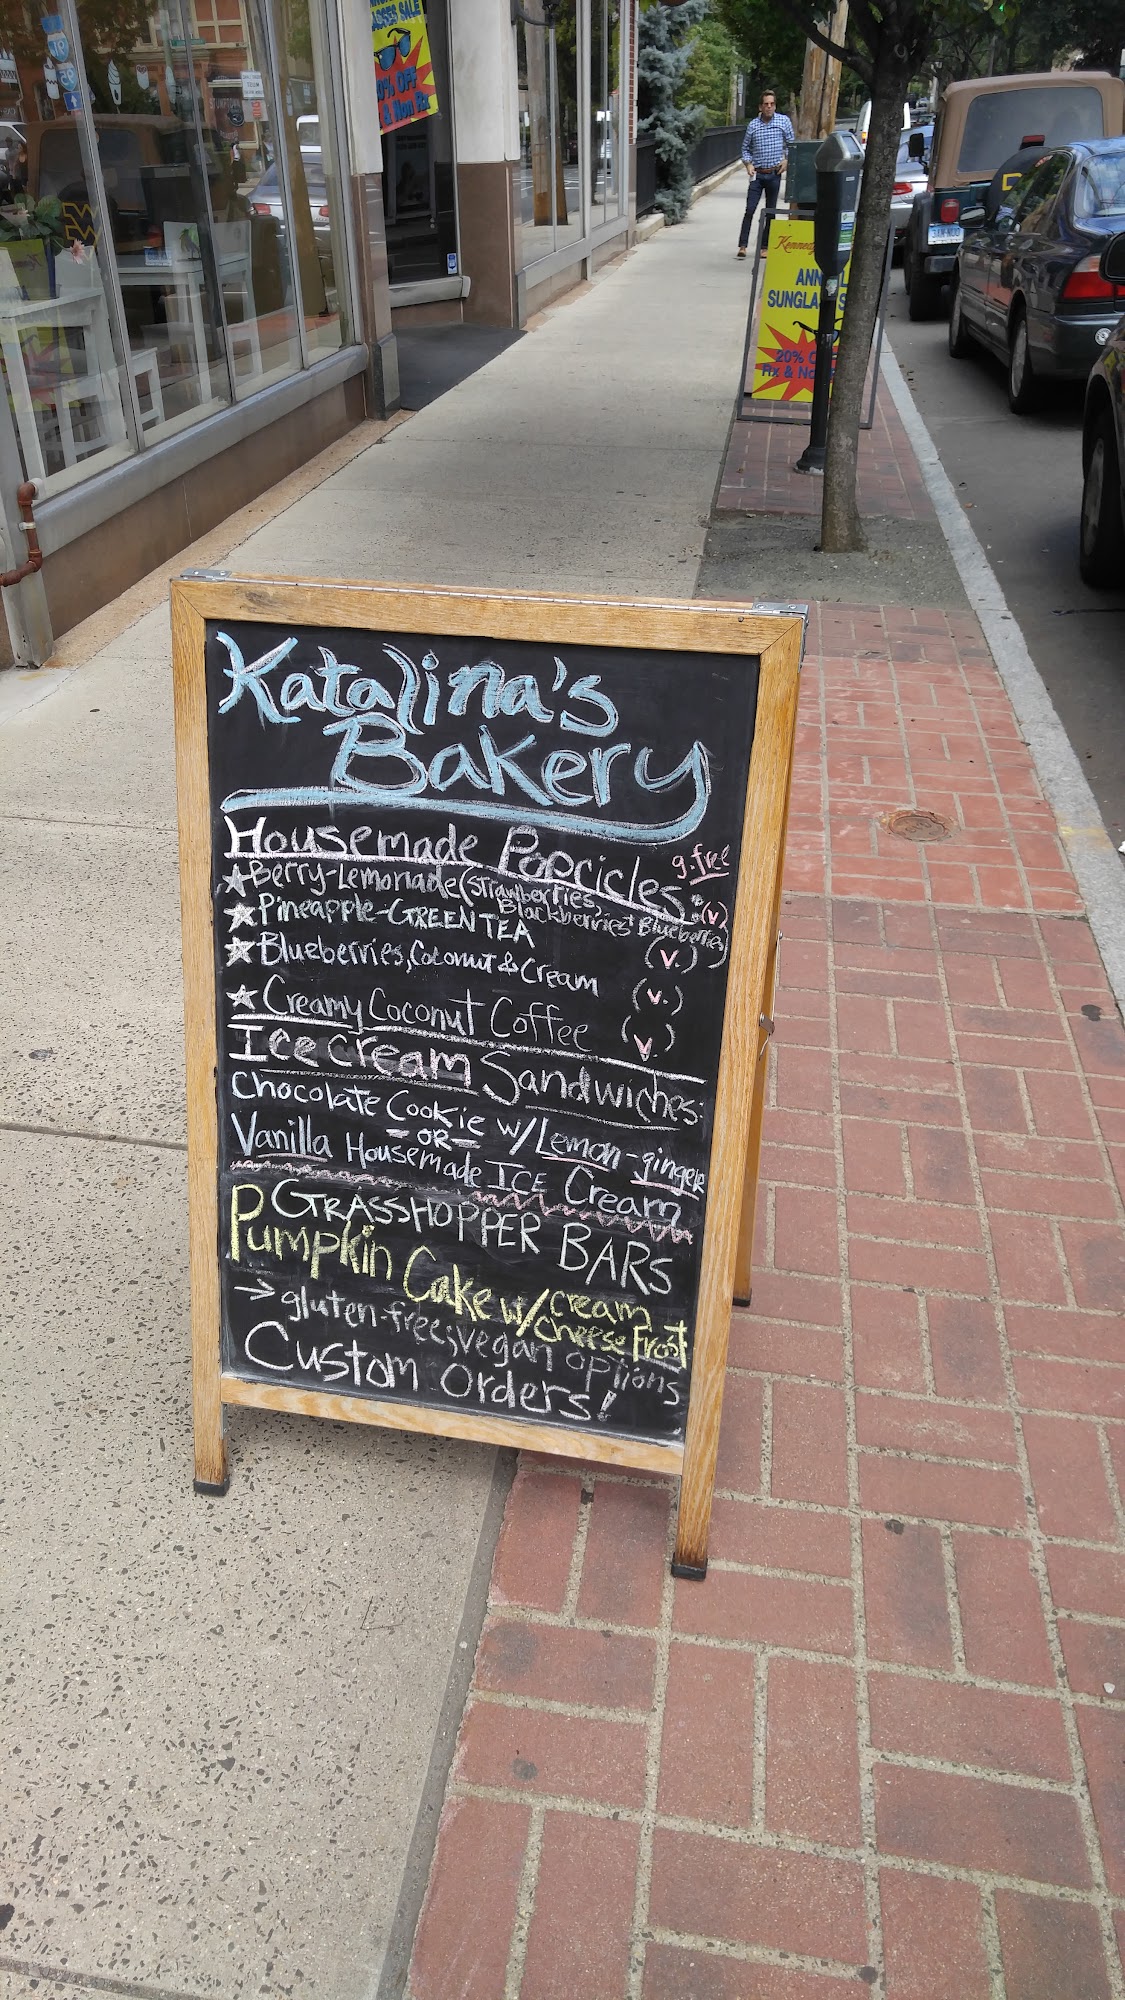 Katalina's
Bakery
Housemade Popcicles:
g.free
(v.)
★Berry-Lemonade (strawberries,
Blackberries + Blueberries)
★Pineapple-GREEN TEA
(v.)
★Blueberries, Coconut & Cream
(v.)
★Creamy Coconut Coffee
(v.)
Ice cream Sandwiches:
Chocolate Cookie w/Lemon-ginger
-OR-
Vanilla Housemade ICE Cream
GRASSHOPPER BARS
Pumpkin Cake w/cream
cheese Frost
→gluten-free, vegan options
Custom Orders!
SALE
& Non
Kennedy
SUNGLA
20%
Rx & No